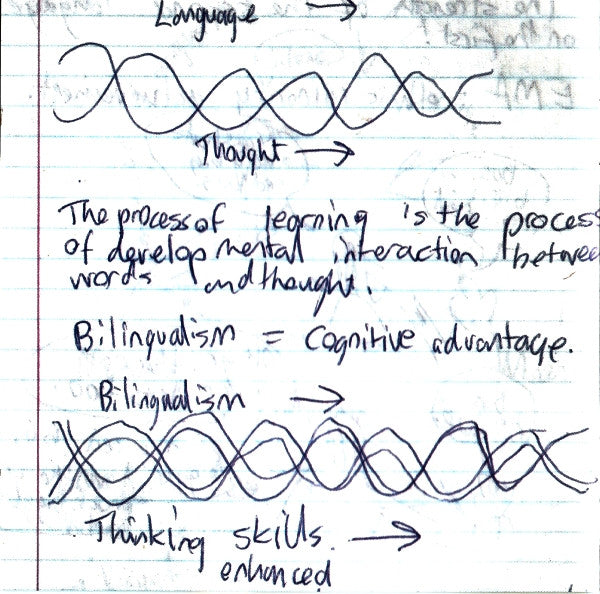 Language →
Thought →
The process of learning is the process
of developmental interaction between
words and thought.
Bilingualism = Cognitive advantage.
Bilingualism →
Thinking skills →
enhanced